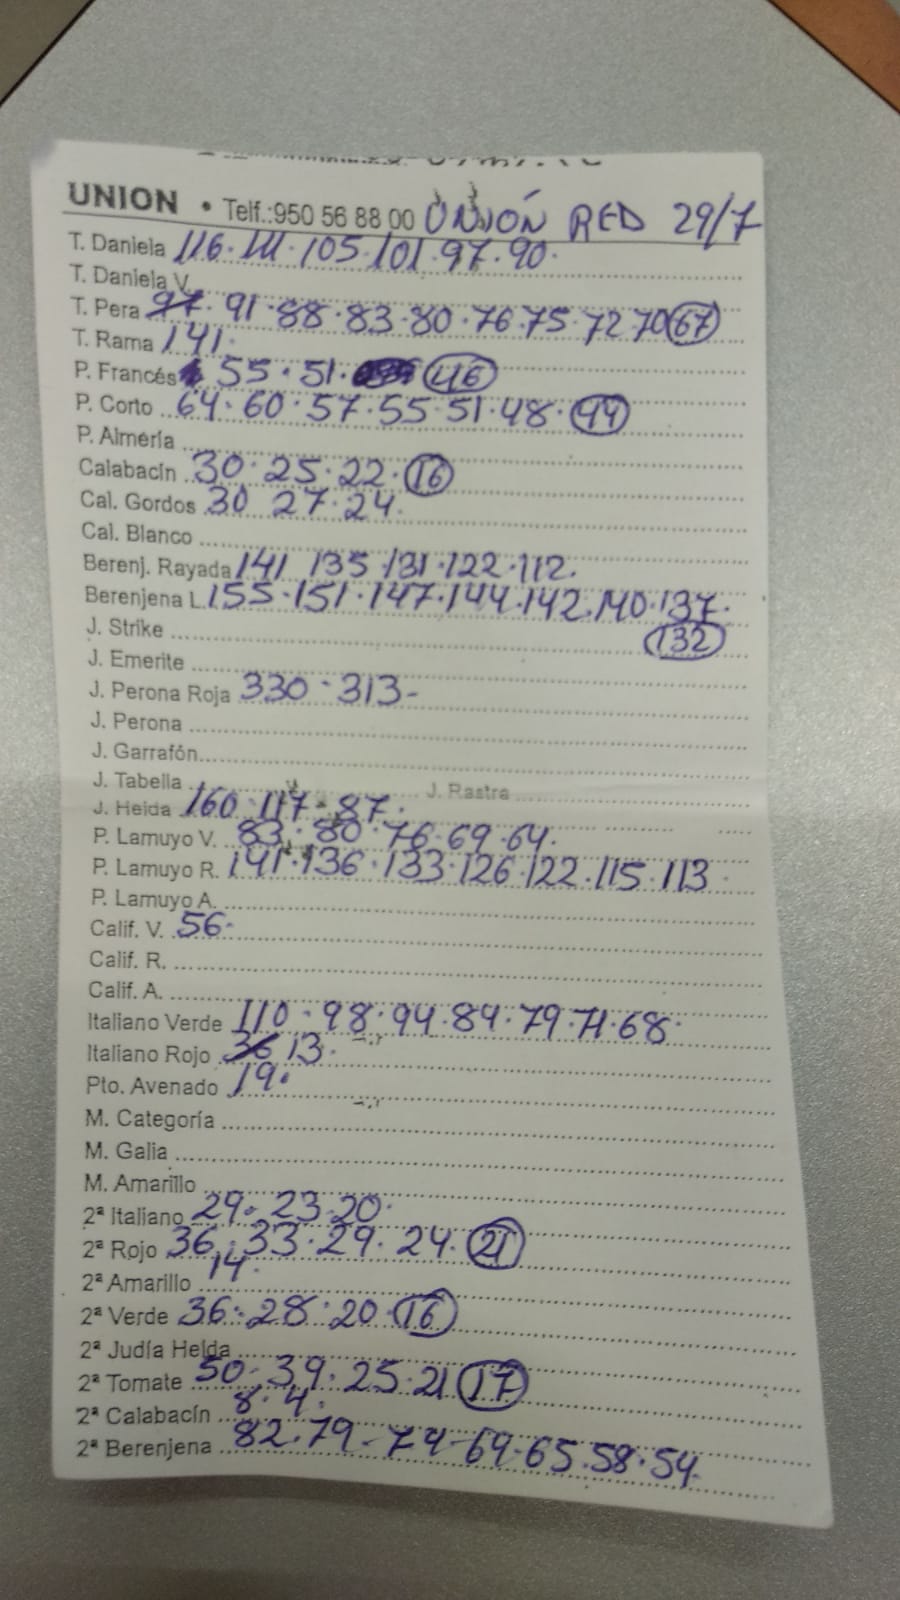 UNION • Telf.:950 56 88 00 UNIÓN RED 29/7
T. Daniela 116·111·105·101·97·90·
T. Daniela V.
T. Pera 97·91·88·83·80·76·75·72 70 67
T. Rama 141·
P. Francés 55·51· 46
P. Corto 64·60·57·55·51·48·44
P. Almería
Calabacín 30·25·22·16
Cal. Gordos 30 27·24
Cal. Blanco
Berenj. Rayada 141 135·131·122·112.
Berenjena L. 155·151·147·144·142·140·137·
132
J. Strike
J. Emerite
J. Perona Roja 330·313-
J. Perona
J. Garrafón
J. Tabella J. Rastra
J. Helda 160·117·87·
P. Lamuyo V. 83·80·76·69·64.
P. Lamuyo R. 141·136·133·126·122·115·113
P. Lamuyo A.
Calif. V. 56·
Calif. R.
Calif. A.
Italiano Verde 110·98·94·84·79·71·68·
Italiano Rojo 36 13·
Pto. Avenado 19·
M. Categoría
M. Galia
M. Amarillo
2ª Italiano 29·23·20·
2ª Rojo 36·33·29·24·21
2ª Amarillo 14·
2ª Verde 36·28·20·16
2ª Judía Helda
2ª Tomate 50-39·25·21 17
2ª Calabacín 8·4·
2ª Berenjena 82·79-74-69-65·58·54